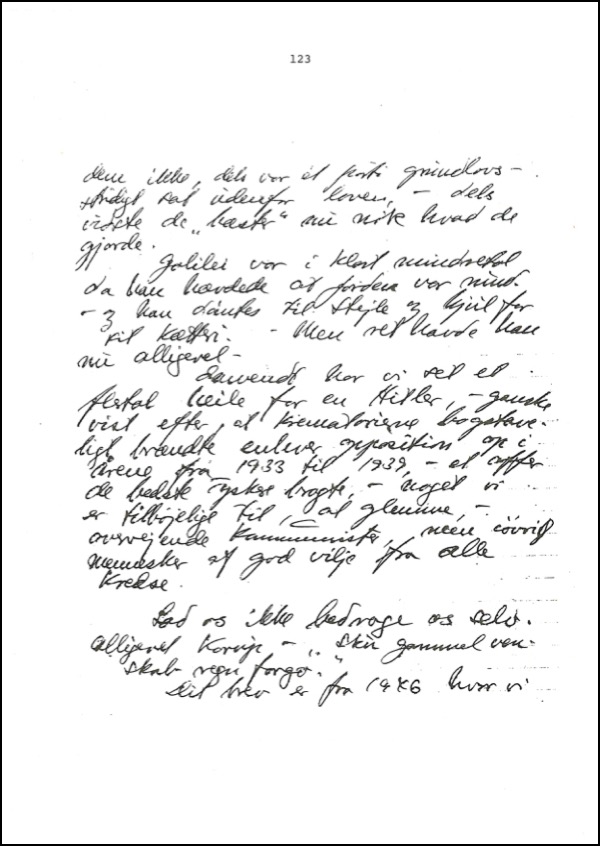 123
dem ikke, dels var ét parti grundlovs-
stridigt sat udenfor loven, - dels
vidste de „bæster“ nu nok hvad de
gjorde.
Galilei var i klart mindretal
da han hævdede at jorden var rund.
- og han dømtes til stejle og hjul for
sit kætteri. - Men ret havde han
nu alligevel -
Omvendt har vi set et
flertal heile for en Hitler, - ganske
vist efter, at krematorierne bogstave-
ligt brændte enhver opposition op i
årene fra 1933 til 1939, - et offer
de bedste tyskere bragte, - noget vi
er tilbøjelige til, at glemme, -
overvejende kommunister, men iøvrigt
mennesker af god vilje fra alle
kredse.
Lad os ikke bedrage os selv.
Alligevel Kornip - „sku gammel ven-
skab reen forgo.“
Dit brev er fra 1946 hvor vi